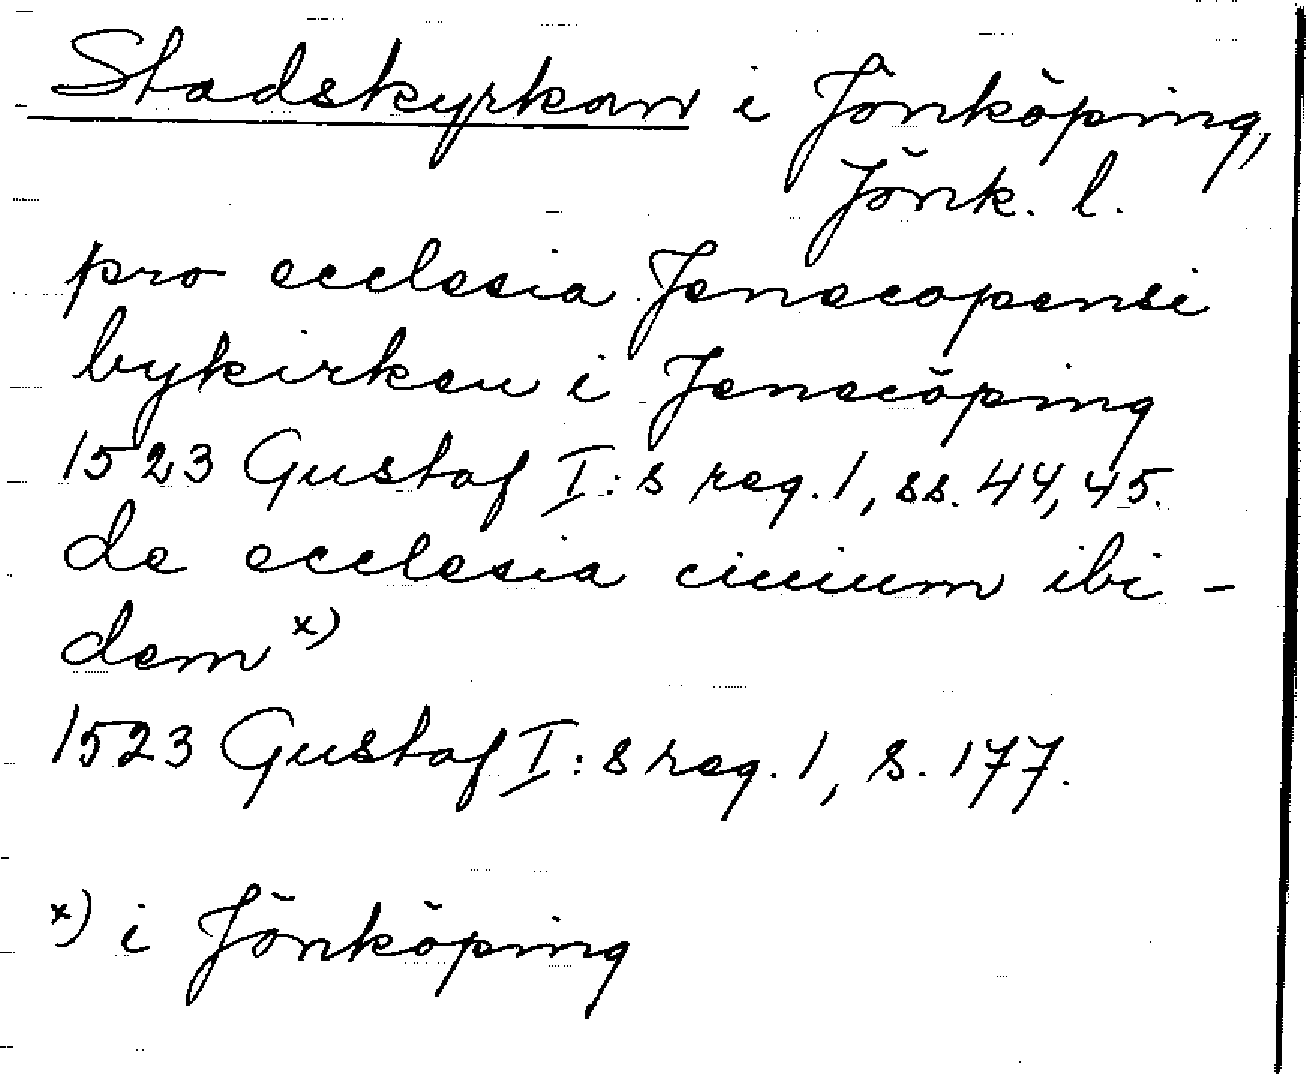 Stadskyrkan i Jönköping,
Jönk. l.
pro ecclesia Jenecopensi
bykirken i Jenecöping
1523 Gustaf I:s reg. 1, ss. 44, 45.
de ecclesia ciuium ibi-
dem x)
1523 Gustaf I:s reg. 1, s. 177.
x) i Jönköping